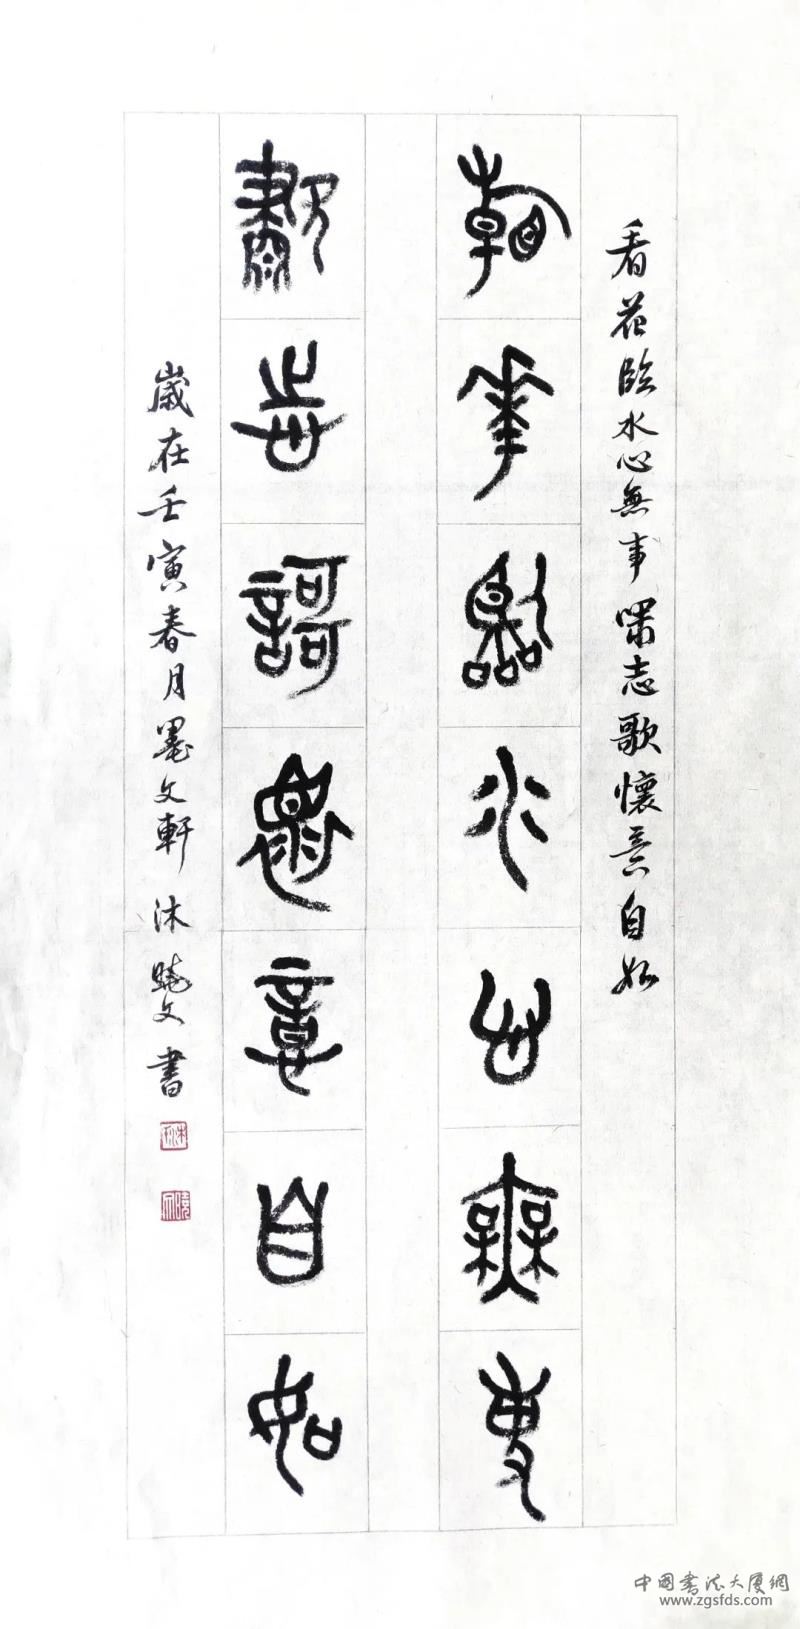 看花臨水心無事嘯志歌懷意自如
看花臨水心無事
嘯志歌懷意自如
歲在壬寅春月墨文軒沐曉文書
中国書法大廈網
www.zgsfds.com